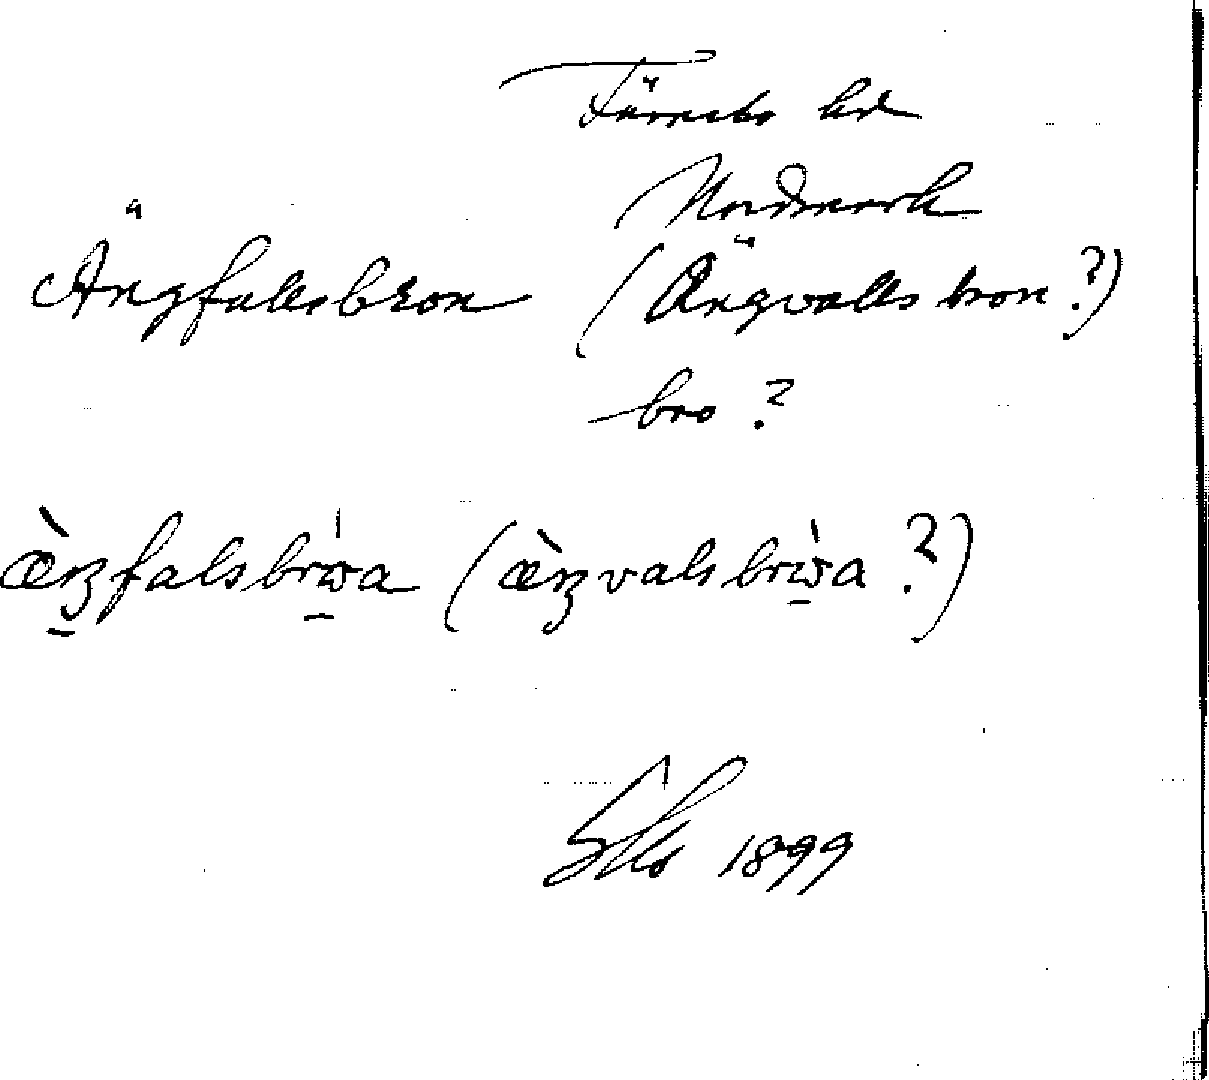 Färnebo hd
Nordmark
Ängfallsbron (Ängvallsbron?)
bro?
æ̀ŋfalsbrẁa (æ̀ŋvalsbrẁa?)
1899